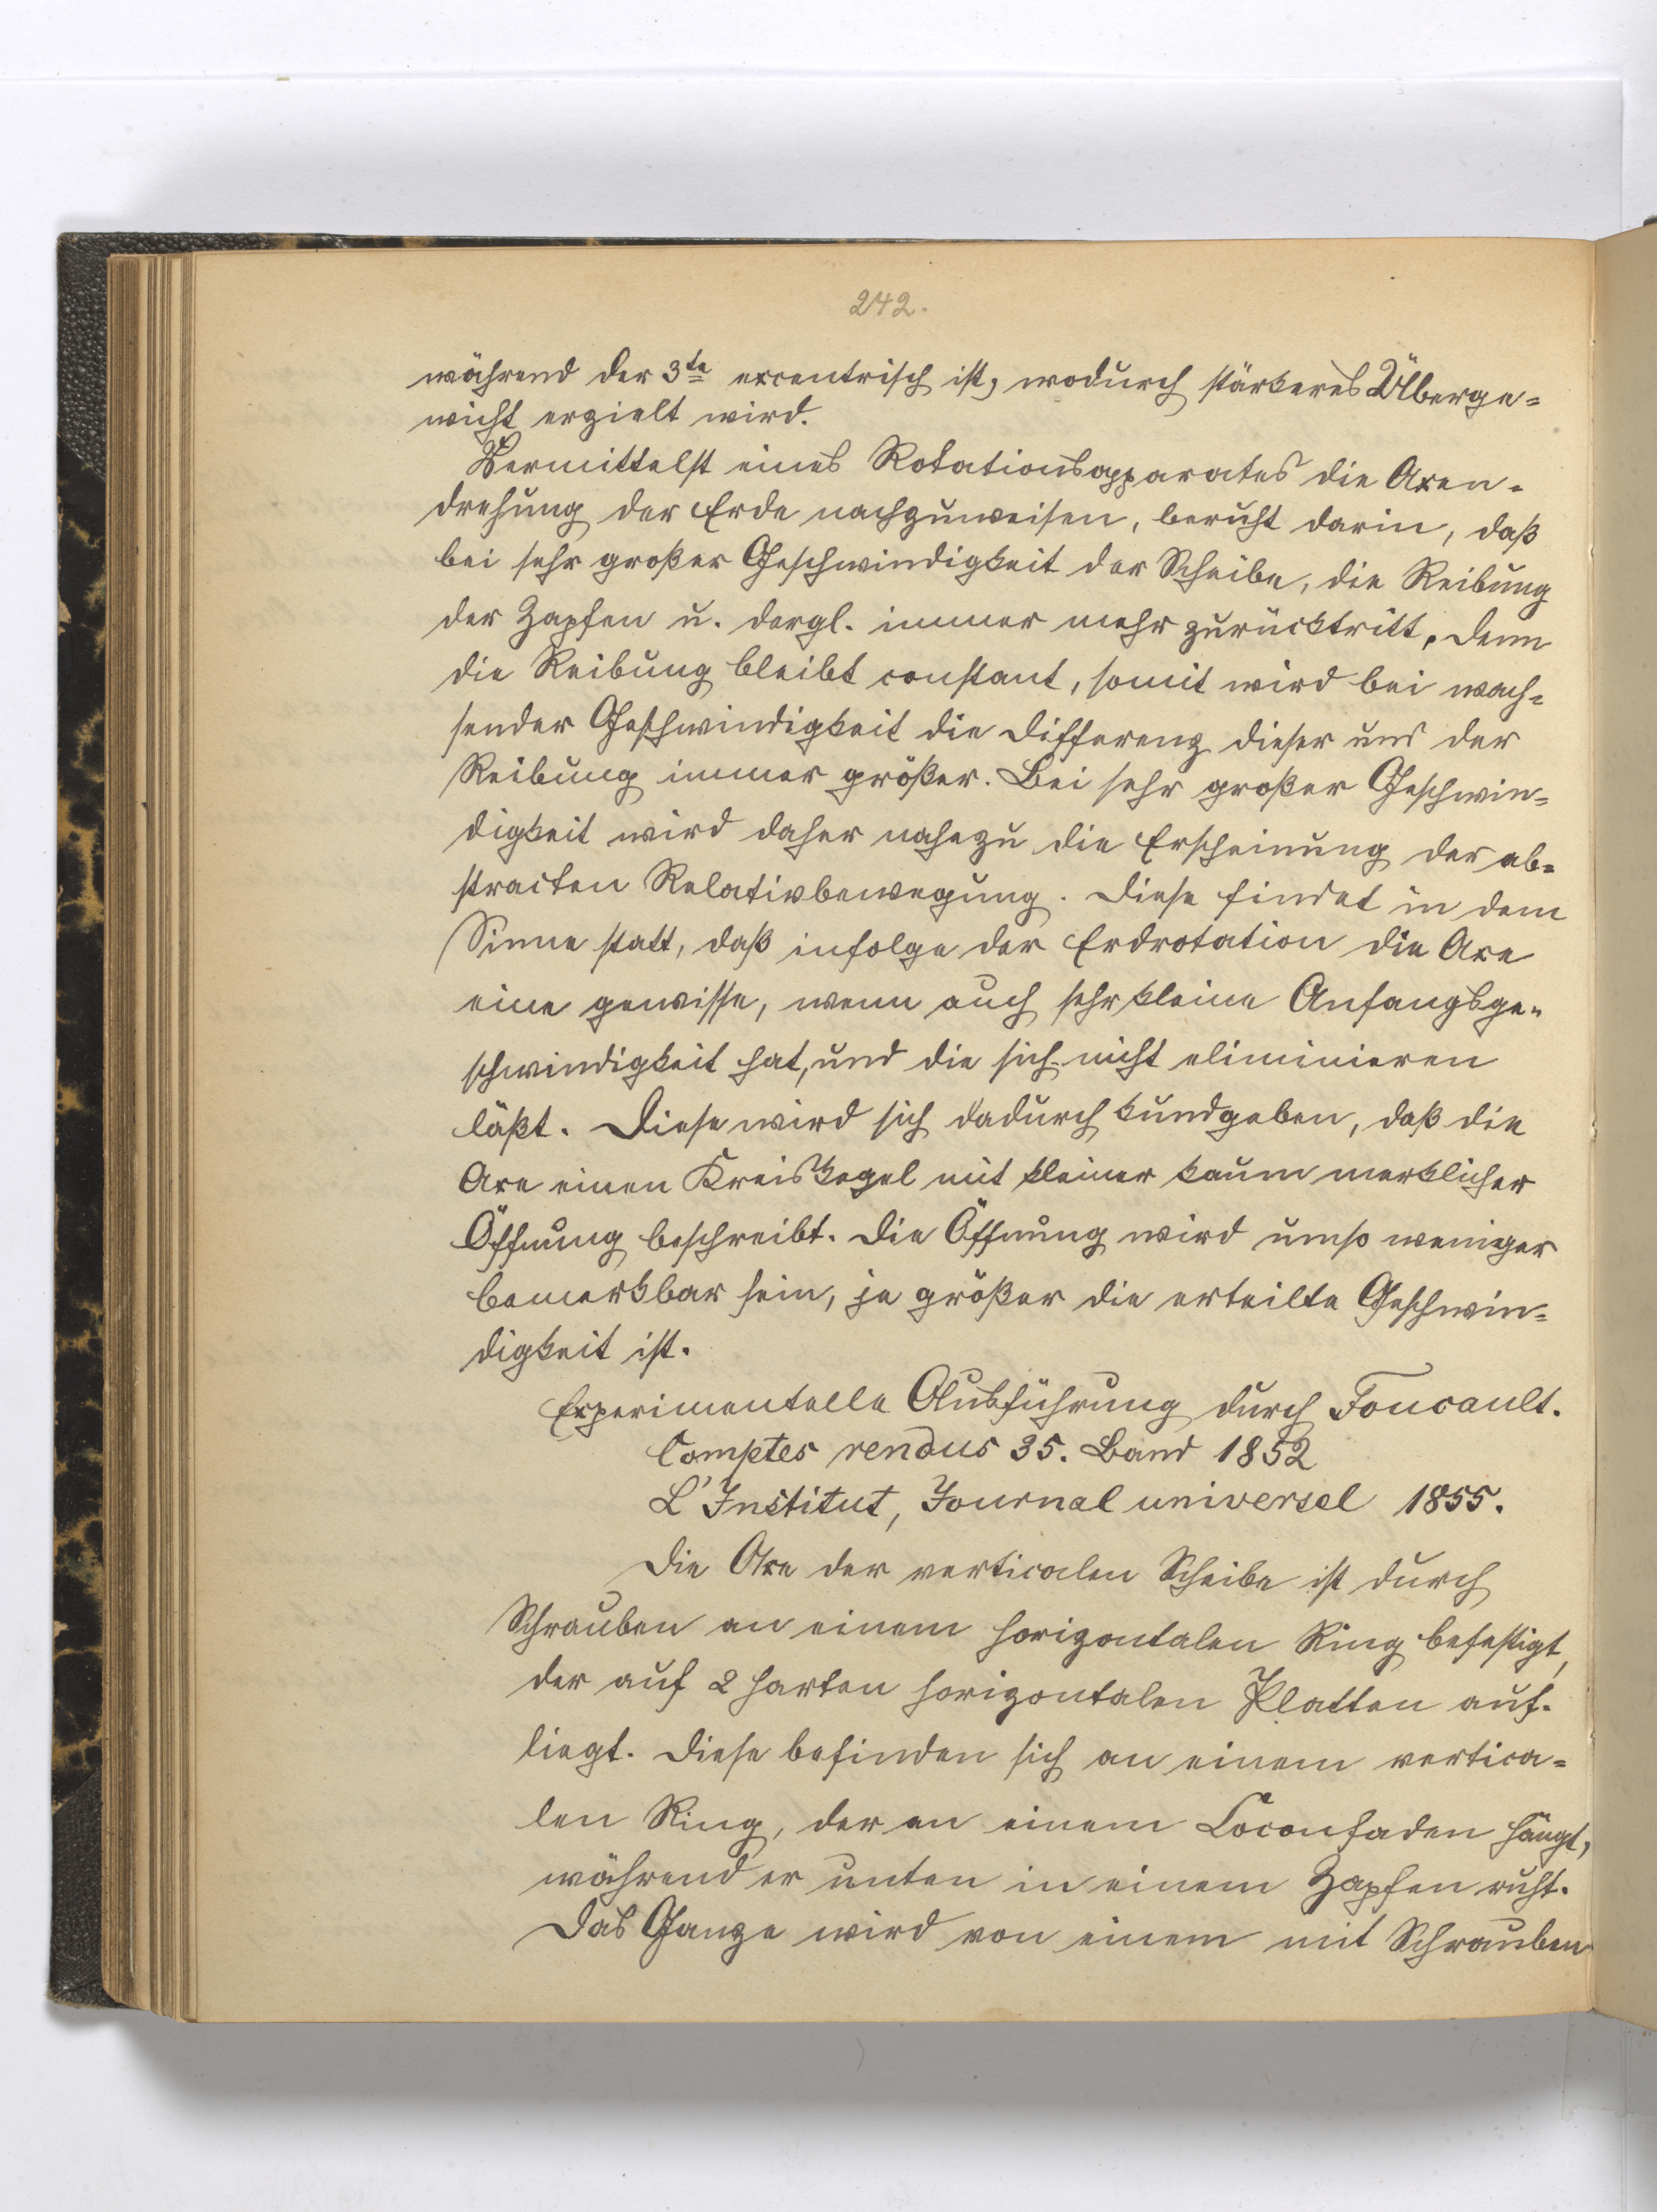 242.
während der 3te excentrisch ist, wodurch stärkeres Überge=
wicht erzielt wird.
Vermittelst eines Rotationsapparates die Axen-
drehung der Erde nachzuweisen, beruht darin, daß
bei sehr großer Geschwindigkeit der Scheibe, die Reibung
der Zapfen u. dergl. immer mehr zurücktritt, denn
die Reibung bleibt constant, somit wird bei wach=
sender Geschwindigkeit die Differenz dieser und der
Reibung immer größer. Bei sehr großer Geschwin=
digkeit wird daher nahezu die Erscheinung der ab=
stracten Relativbewegung. Diese findet in dem
Sinne statt, daß infolge der Erdrotation die Axe
eine gewisse, wenn auch sehr kleine Anfangsge=
schwindigkeit hat, und die sich nicht eliminieren
läßt. Diese wird sich dadurch kundgeben, daß die
Axe einen Kreiskegel mit kleiner kaum merklicher
Öffnung beschreibt. Die Öffnung wird umso weniger
bemerkbar sein, je größer die erteilte Geschwin=
digkeit ist.
Experimentelle Ausführung durch Foucault.
Comptes rendus 35. Band 1852
L'Institut, Journal universel 1855.
Die Axe der verticalen Scheibe ist durch
Schrauben an einem horizontalen Ring befestigt,
der auf 2 harten horizontalen Platten auf-
liegt. Diese befinden sich an einem vertica=
len Ring, der an einem Coconfaden hängt,
während er unten in einem Zapfen ruht.
Das Ganze wird von einem mit Schrauben